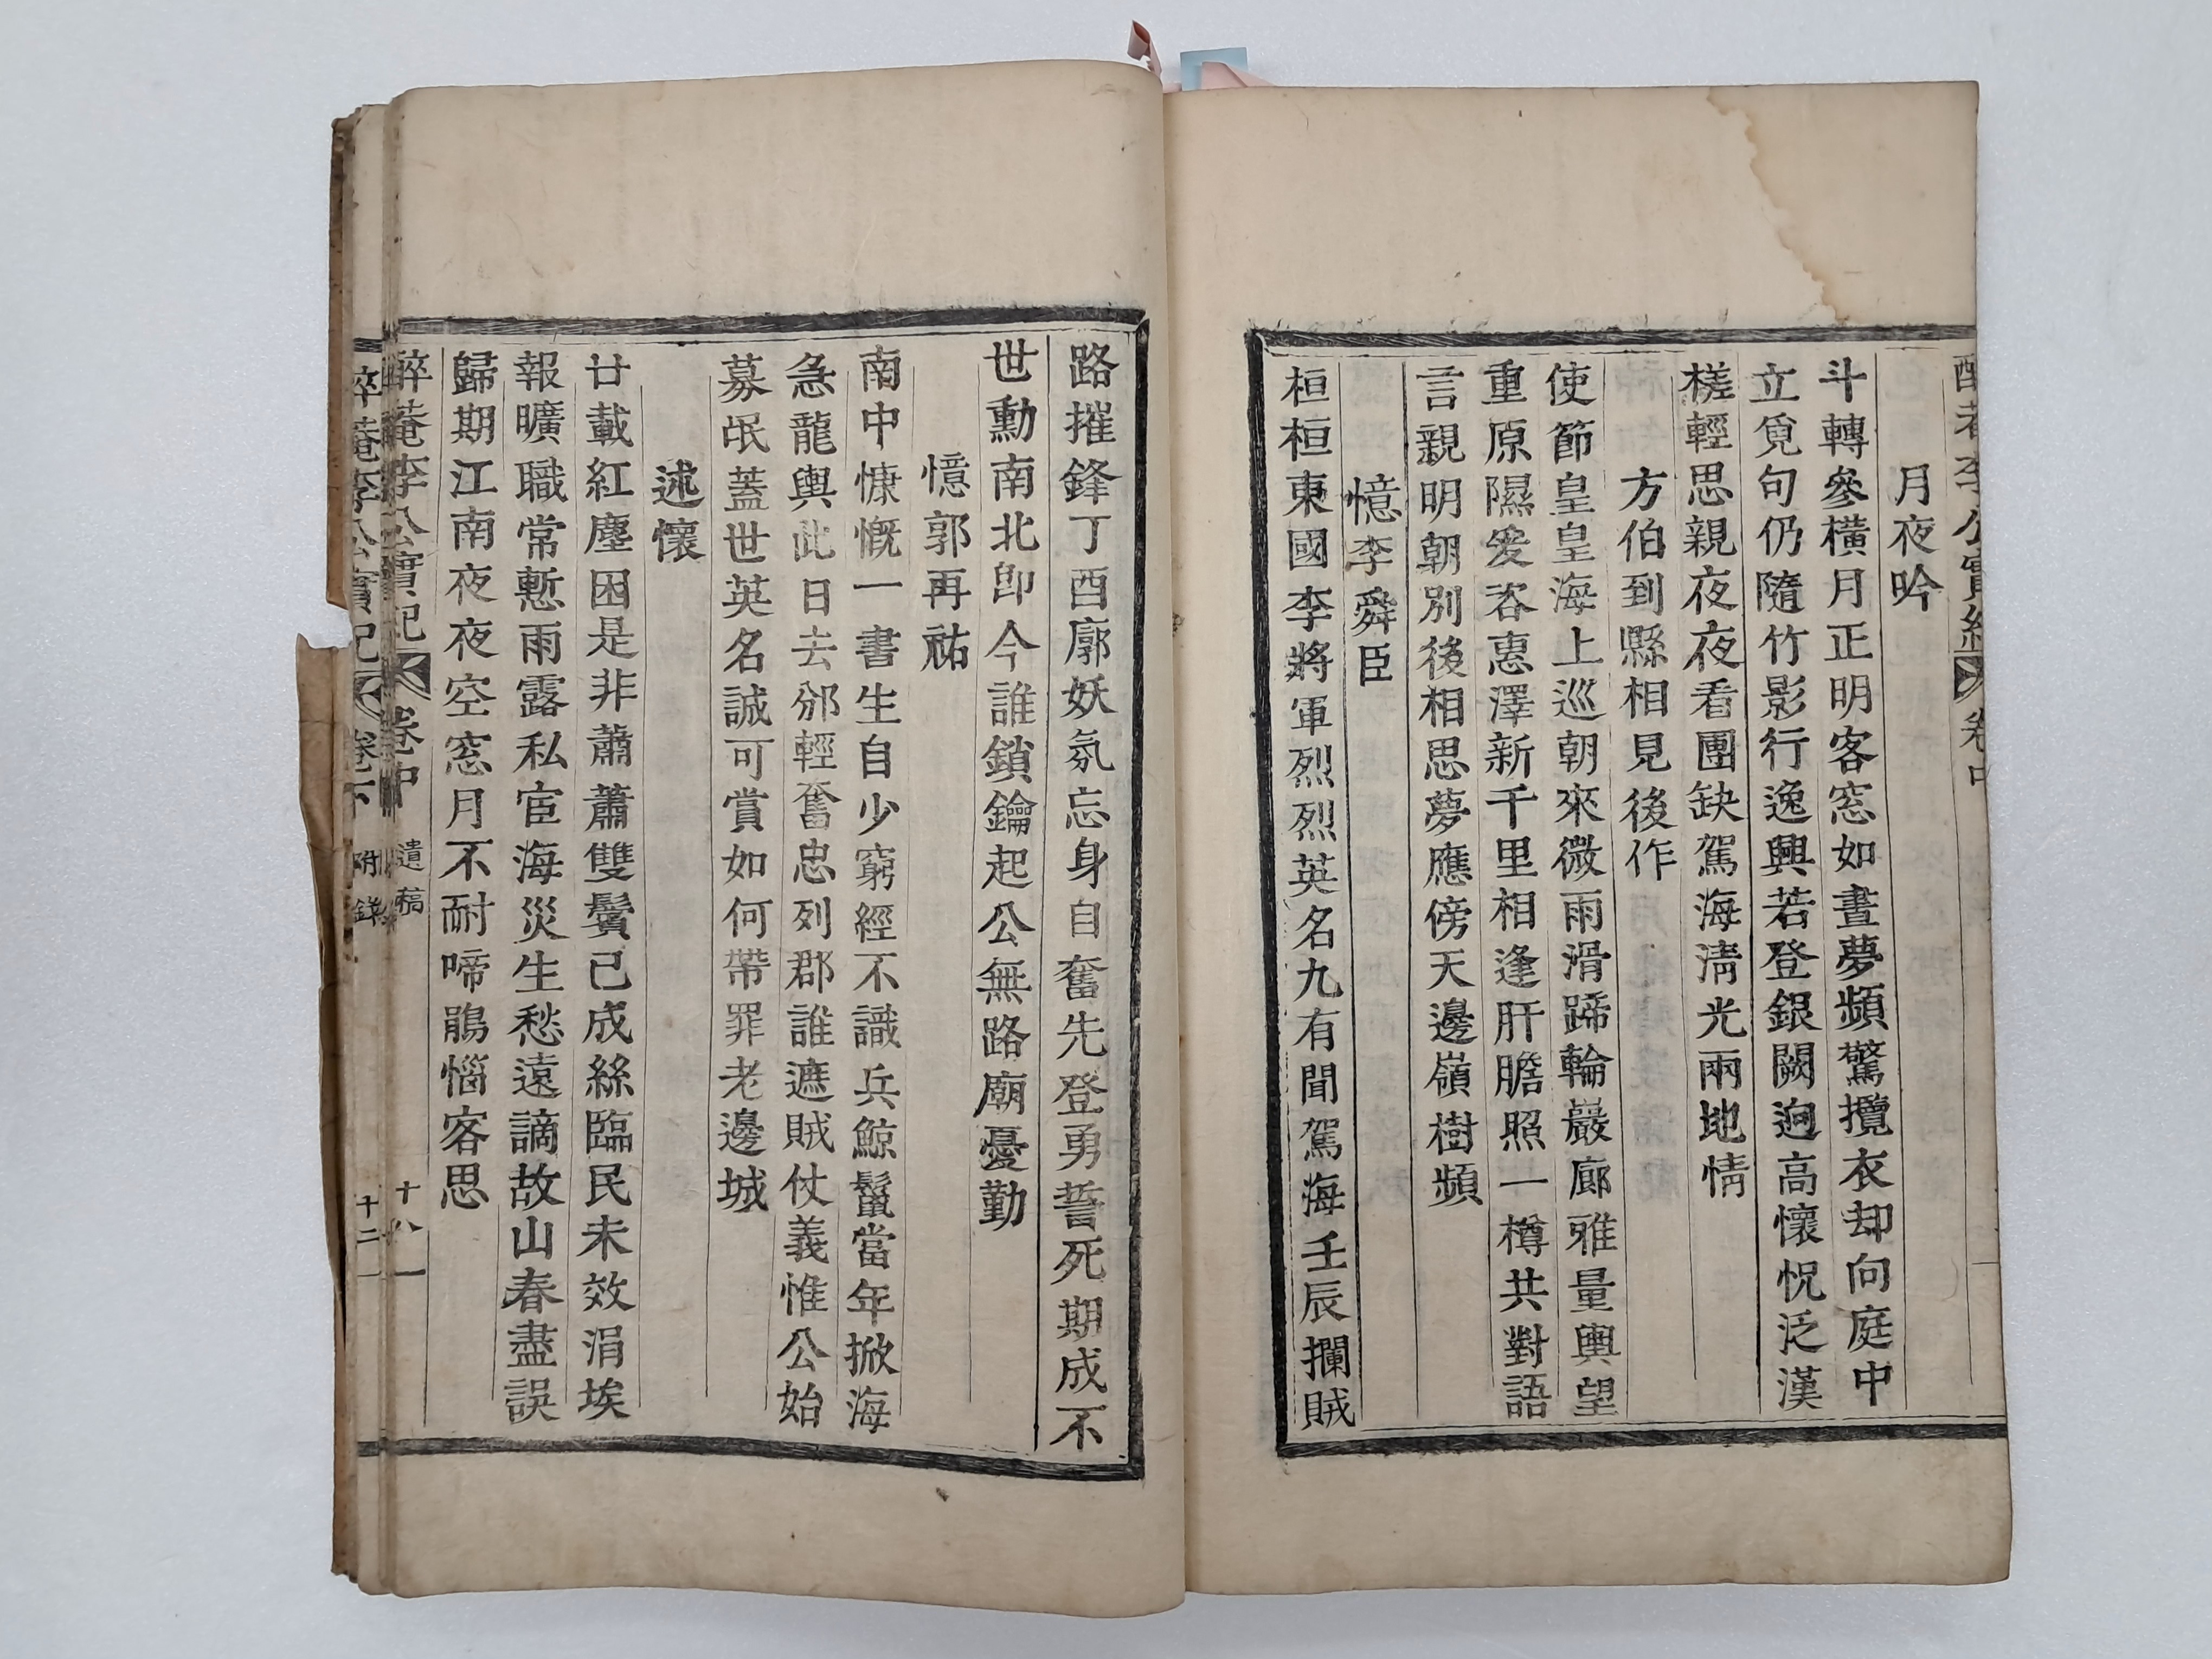 月夜吟
斗轉參橫月正明客窓如晝夢頻驚攬衣却向庭中
立覓句仍隨竹影行逸興若登銀闕逈高懷怳泛漢
槎輕思親夜夜看團缺駕海淸光兩地情
方伯到縣相見後作
使節皇皇海上巡朝來微雨滑蹄輪巖廊雅量輿望
重原隰爰咨惠澤新千里相逢肝膽照一樽共對語
言親明朝別後相思夢應傍天邊嶺樹頻
憶李舜臣
桓桓東國李將軍烈烈英名九有聞駕海壬辰攔賊
路摧鋒丁酉廓妖氛忘身自奮先登勇誓死期成不
世勳南北卽今誰鎖鑰起公無路廟憂勤
憶郭再祐
南中慷慨一書生自少窮經不識兵鯨鬣當年掀海
急龍輿此日去邠輕奮忠列郡誰遮賊仗義惟公始
募氓蓋世英名誠可賞如何帶罪老邊城
述懷
廿載紅塵困是非蕭蕭雙鬢已成絲臨民未效涓埃
報曠職常慙雨露私宦海災生愁遠謫故山春盡誤
歸期江南夜夜空窓月不耐啼鵑惱客思
醉菴李公實記 卷中 遺稿 十八
醉菴李公實記 卷下 附錄 十二